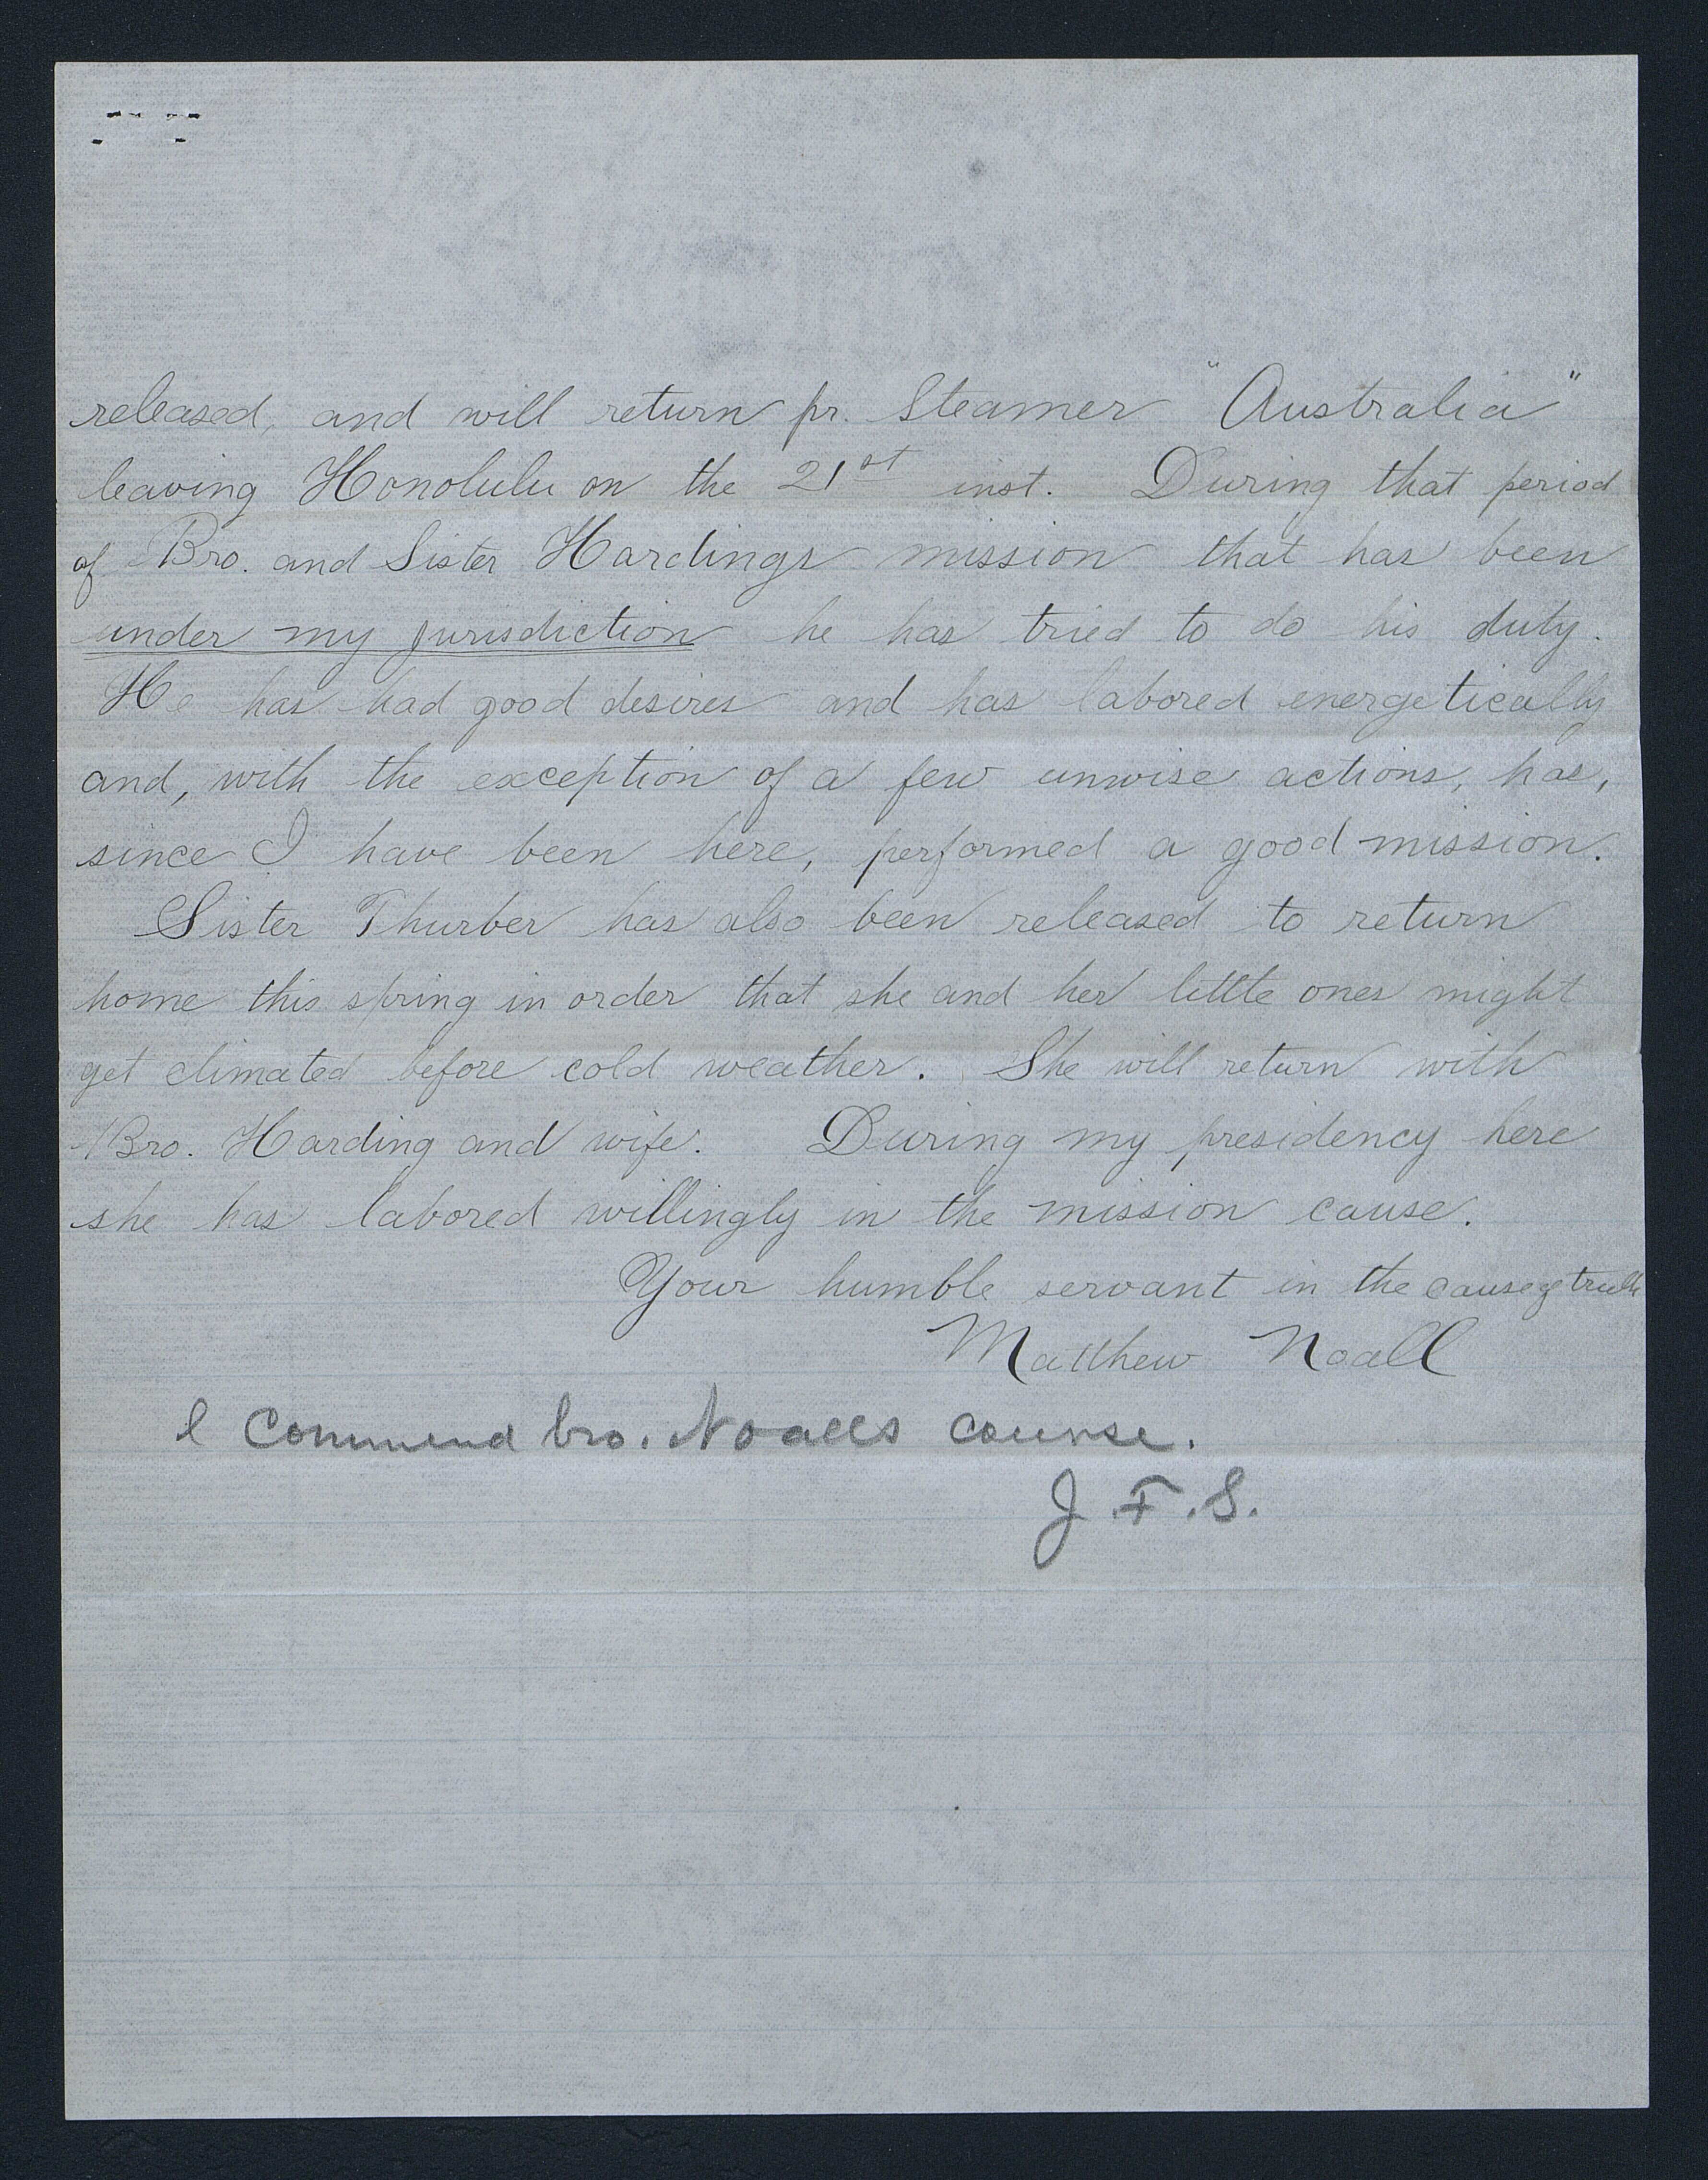 released, and will return pr. Steamer "Australia"
leaving Honolulu on the 21st inst. During that period
of Bro. and Sister Hardings mission that has been
under my jurisdiction he has tried to do his duty.
He has had good desires and has labored energetically
and, with the exception of a few unwise actions, has,
since I have been here, performed a good mission.
Sister Thurber has also been released to return
home this spring in order that she and her little ones might
get climated before cold weather. She will return with
Bro. Harding and wife. During my presidency here
she has labored willingly in the mission cause.
Your humble servant in the cause of truth
Matthew Noall
I Commend bro. Noalls course.
J. F. S.